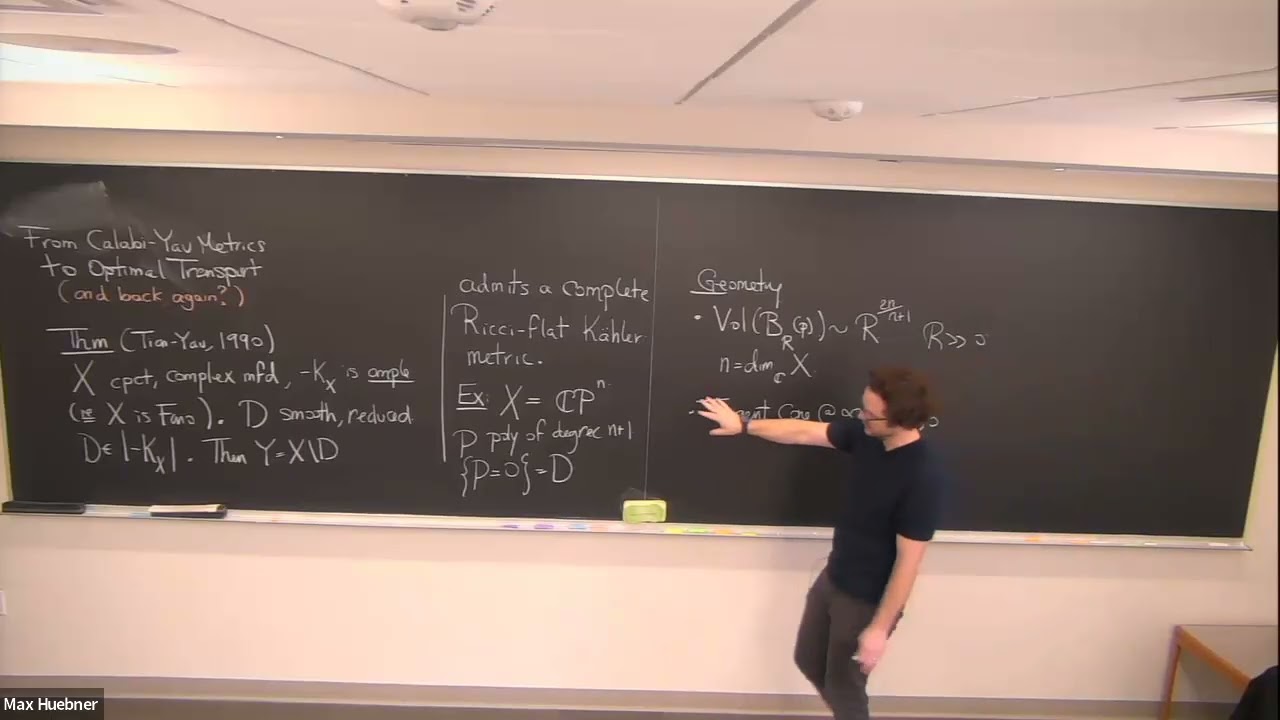 From Calabi-Yau Metrics
to Optimal Transport
(and back again?)
Thm (Tian-Yau, 1990)
X cpct, complex mfd, -K_X is ample
(ie X is Fano). D smooth, reduced
D ∈ |-K_X|. Then Y = X\D
admits a complete
Ricci-flat Kähler
metric.
Ex: X = ℂP^n.
P poly of degree n+1
{P=0} = D
Geometry
• Vol(B_R(p)) ~ R^{2n/n+1} R>>0
n = dim_ℂ X.
Cone @
Max Huebner